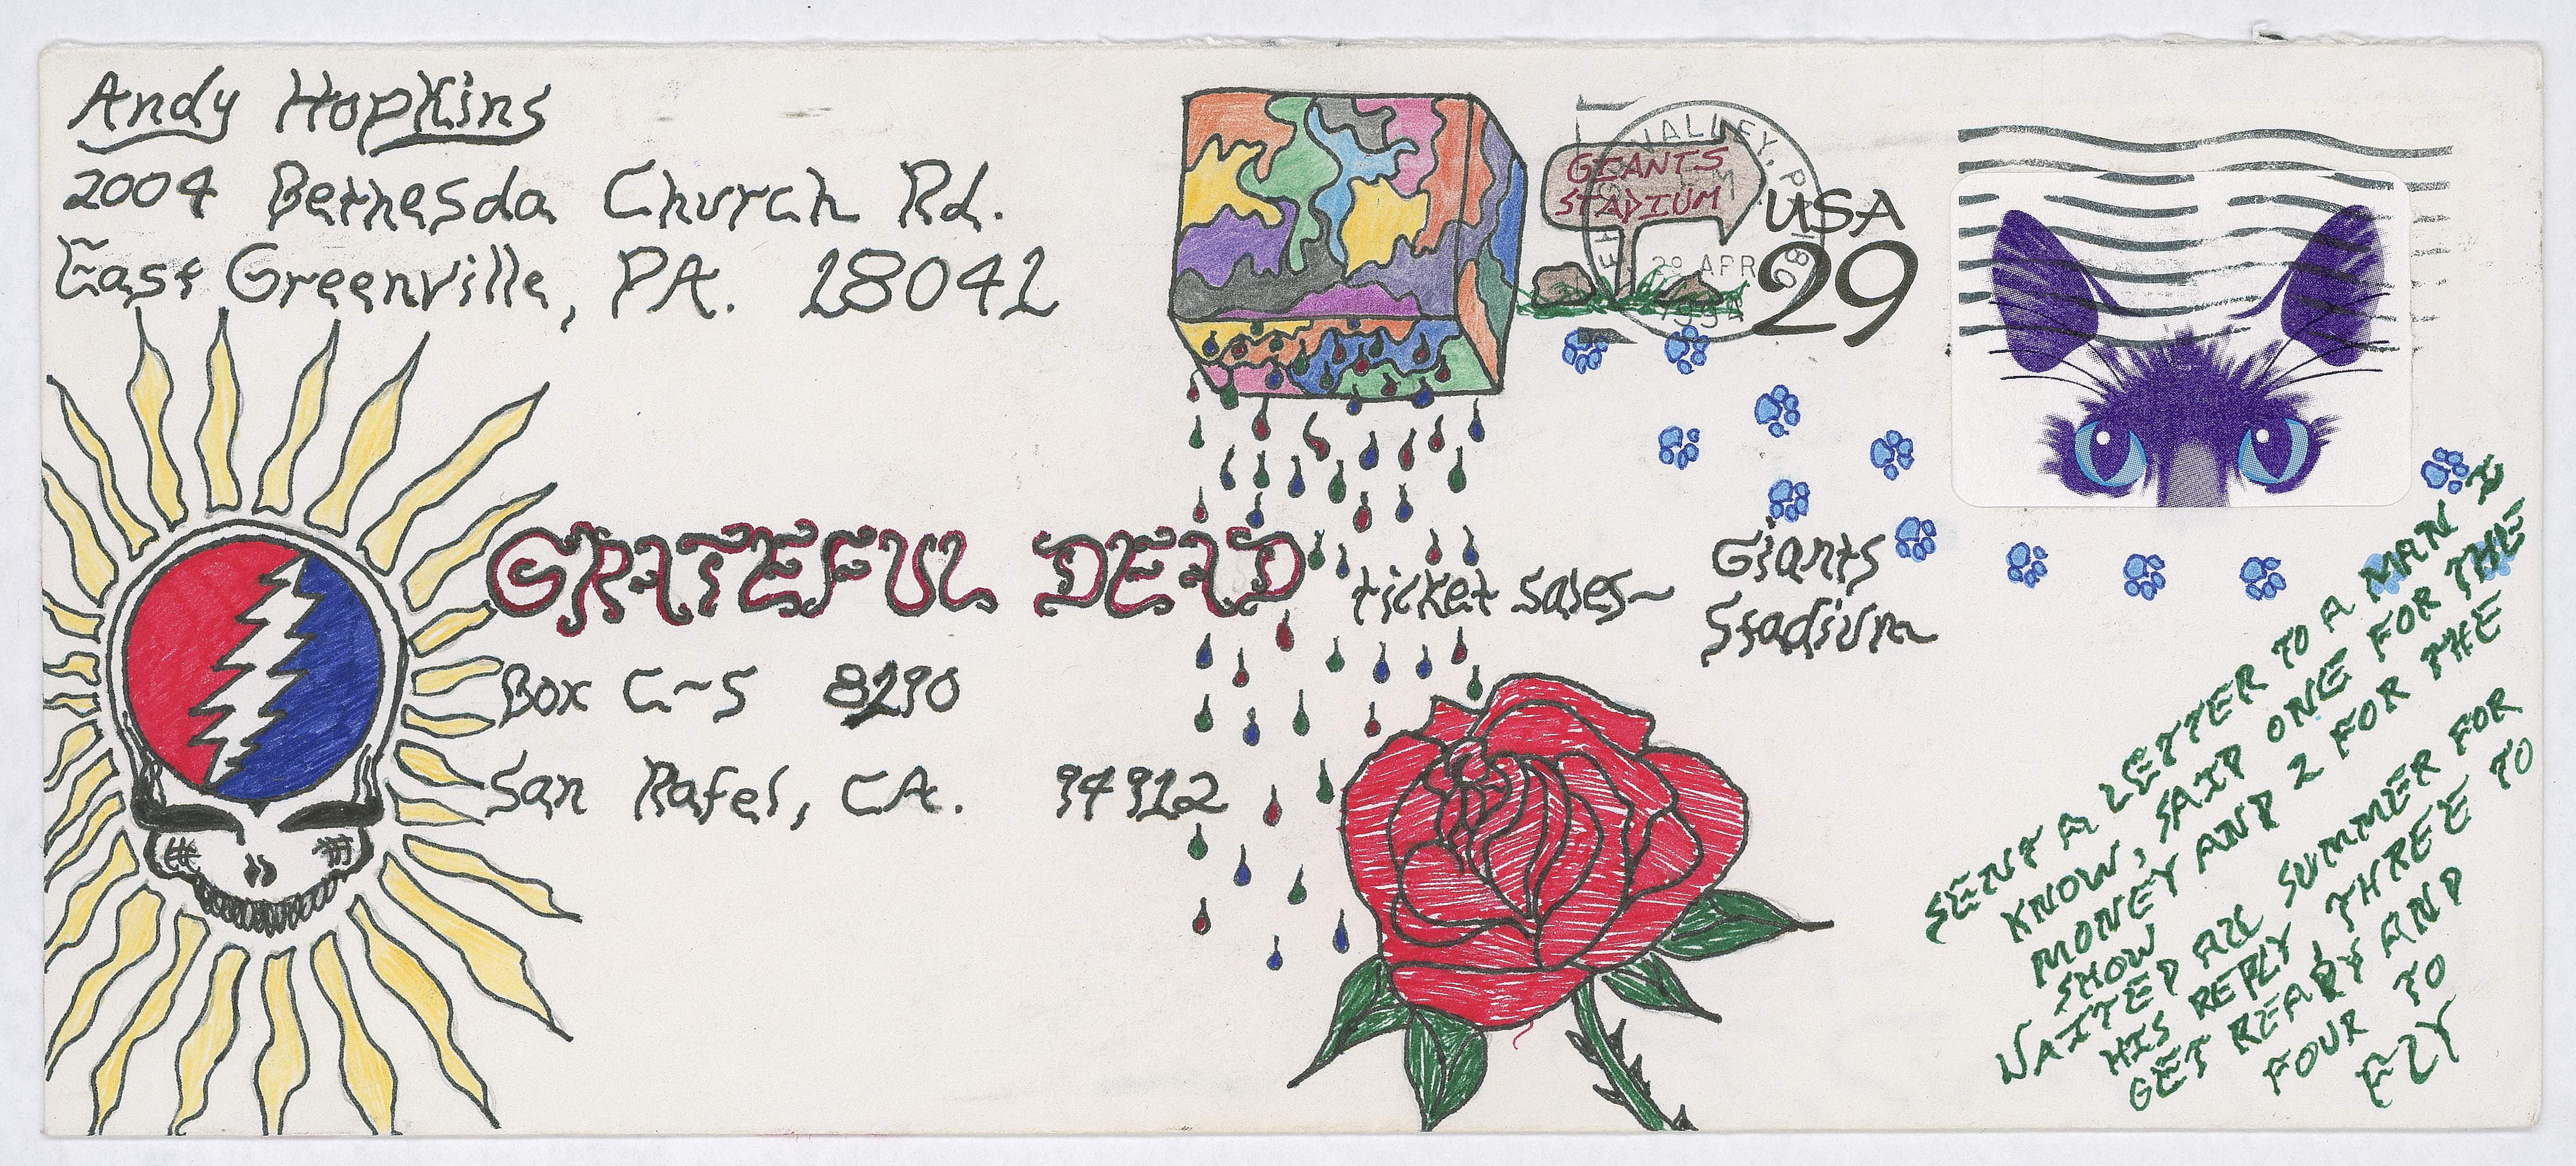 Andy Hopkins
2004 Bethesda Church Rd.
East Greenville, PA. 18041
GIANTS
STADIUM
USA
29
VALLEY, PA
29 APR
1994
GRATEFUL DEAD ticket sales~ Giants
Stadium
Box C~S 8290
San Rafel, CA. 94912
SENT A LETTER TO A MAN I
KNOW, SAID ONE FOR THE
MONEY AND 2 FOR THE
SHOW
WAITED ALL SUMMER FOR
HIS REPLY, THREE TO
GET READY AND
FOUR TO
FLY